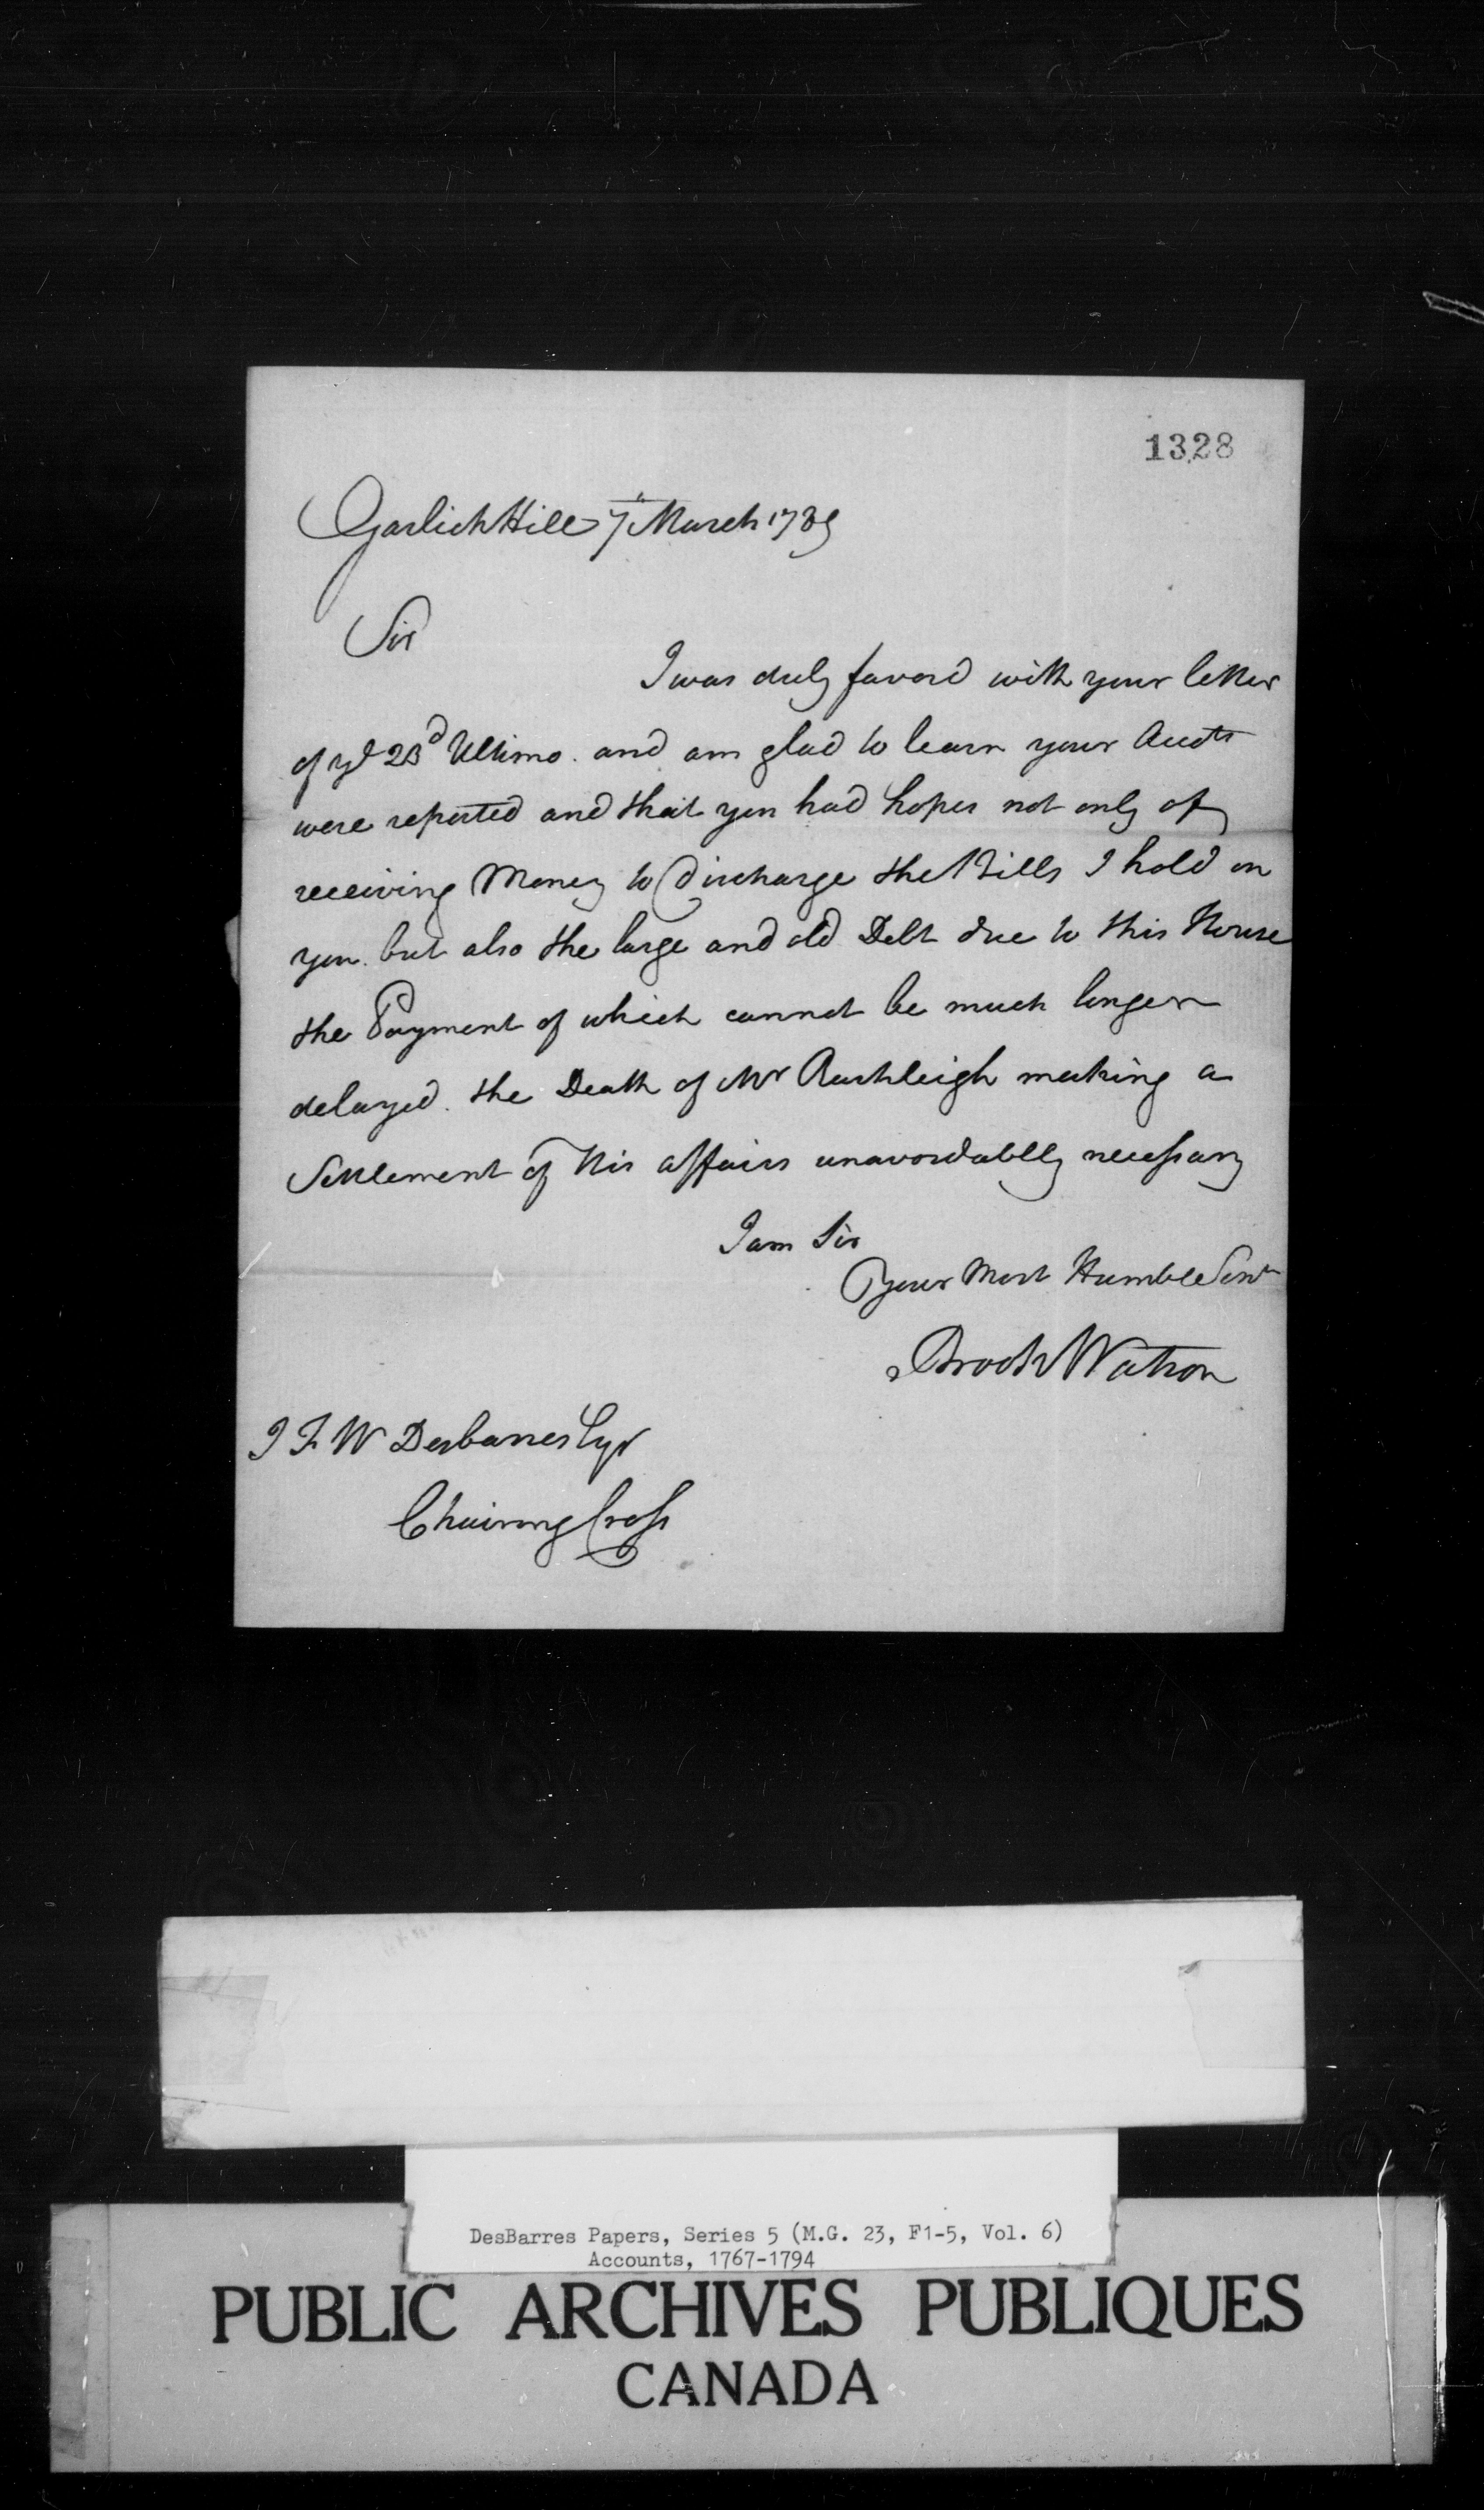 1328
Garlick Hill 7th March 1789
Sir
I was duly favord with your letter
of ye 23d Ultimo. and am glad to learn your Accts
were reported and that you had hopes not only of
receiving Money to Discharge the Bills I hold on
you. but also the large and old Debt due to this House
the Payment of which cannot be much longer
delayed. the Death of Mr Rashleigh making a
Settlement of his affairs unavoidablly necessary
I am Sir
Your Most Humble Servt
Brook Watson
J F W Desbarres Esqr
Chairing Cross
DesBarres Papers, Series 5 (M.G. 23, F1-5, Vol. 6)
Accounts, 1767-1794
PUBLIC ARCHIVES PUBLIQUES
CANADA